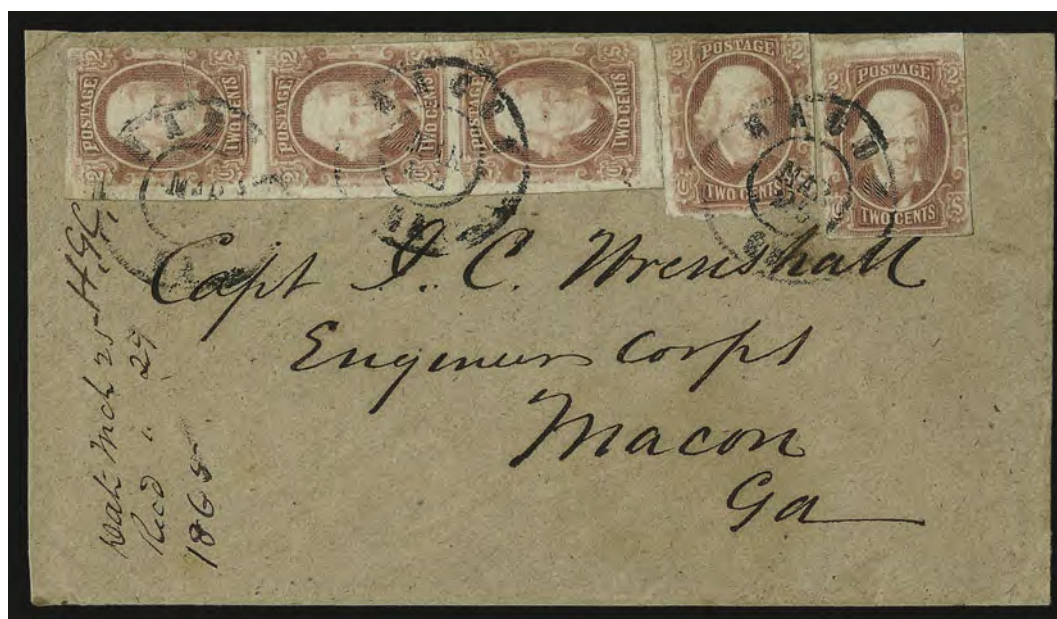 POSTAGE TWO CENTS 2 2
POSTAGE TWO CENTS 2 2
POSTAGE TWO CENTS 2 2
POSTAGE TWO CENTS 2 2
POSTAGE TWO CENTS 2 2
MACON
MAR
MACON
Capt J. C. Wrenshall
Engineer Corps
Macon
Ga
Date Mch 25 H.G.C.
Recd " 27
1865